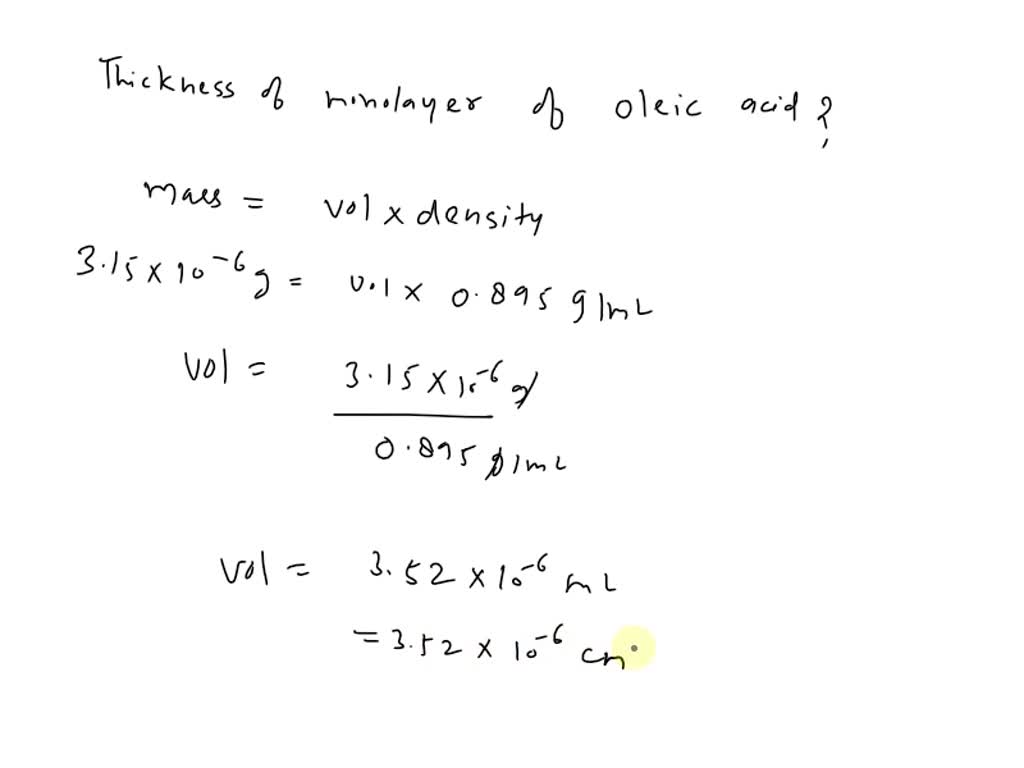 Thickness of monolayer of oleic acid?
mass = vol x density
3.15 x 10-6 g = 0.1 x 0.895 g/mL
vol = 3.15 x 10-6 g
0.895 g/mL
vol = 3.52 x 10-6 mL
= 3.52 x 10-6 cm